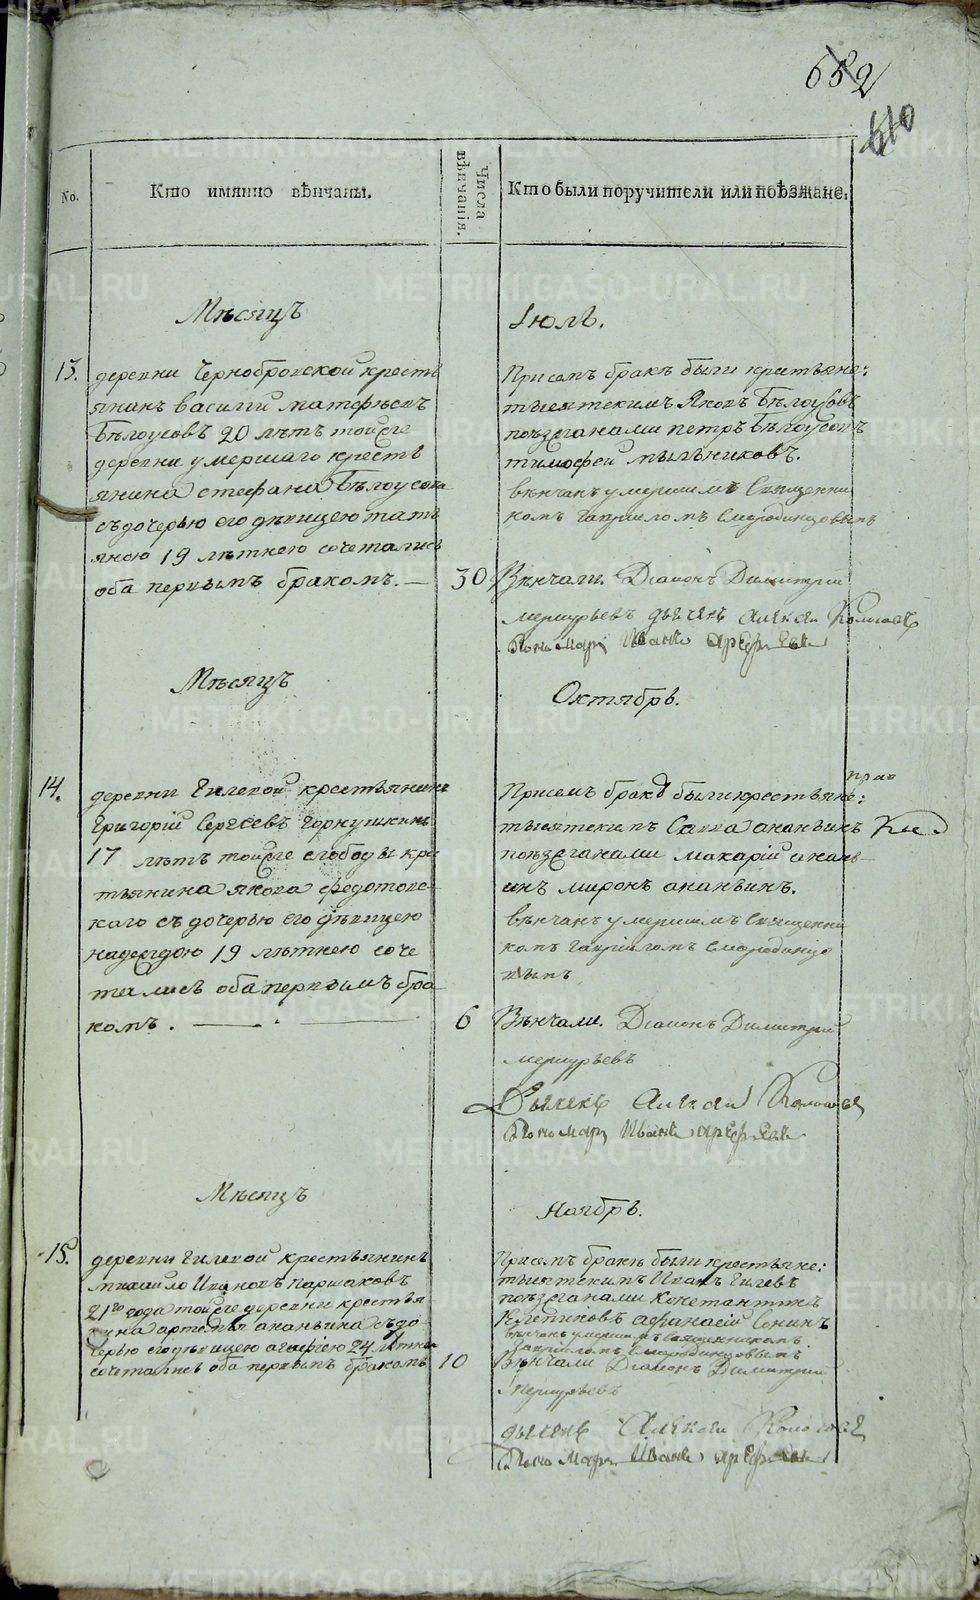 682
610
No.
Кто имянно вѣнчаны.
Числа вѣнчанія.
Кто были поручители или поѣзжане.
Мѣсяцъ
Іюль.
13. деревни Чернобровской кресть
янинъ василій матфѣевъ
Бѣлоусовъ 20 лѣтъ тойже
деревни умершаго кресть
янина стефана Бѣлоусова
съ дочерью его дѣвицею тать
яною 19 лѣтнею сочетались
оба первымъ бракомъ. —
30
При семъ бракѣ были крестьяне:
тысятскимъ Яковъ Бѣлоусовъ
поѣзжанами петръ Бѣлоусовъ
тимофей мыльниковъ.
вѣнчанъ умершимъ Священни
комъ Гавриломъ Смородинцовымъ
Вѣнчали Діаконъ Димитрий
меркурьевъ дьячекъ Алексей
Пономарь Иванъ
Мѣсяцъ
Октябрь.
14. деревни Гилевой крестьянинъ
Григорій Сергѣевъ Горкушкинъ
17 лѣтъ тойже слободы кре
стьянина якова федотовс
каго съ дочерью его дѣвицею
надеждою 19 лѣтнею соче
тались оба первымъ бра
комъ. —
6
При семъ бракѣ были крестьяне:
тысятскимъ Савва ананьинъ
поѣзжанами макарій анань
инъ миронъ ананьинъ.
вѣнчанъ умершимъ Священни
комъ Гавриломъ Смородинцо
вымъ
Вѣнчали. Діаконъ Димитрий
меркурьевъ
Дьячекъ Алексей
Пономарь Иванъ
Мѣсяцъ
Ноябрь.
15. деревни Гилевой крестьянинъ
михайло Ивановъ паршаковъ
21го года тойже деревни крестья
нина артемья ананьина съ до
черью его дѣвицею агафіею 24 лѣтнею
сочетались оба первымъ бракомъ
10
При семъ бракѣ были крестьяне:
тысятскимъ Иванъ Гилевъ
поѣзжанами константинъ
афанасій Сонинъ
вѣнчанъ умершимъ Священникомъ
Гавриломъ Смородинцовымъ
Вѣнчали Діаконъ Димитрий
меркурьевъ
дьячекъ Алексей
Пономарь Иванъ
METRIKI.GASO-URAL.RU